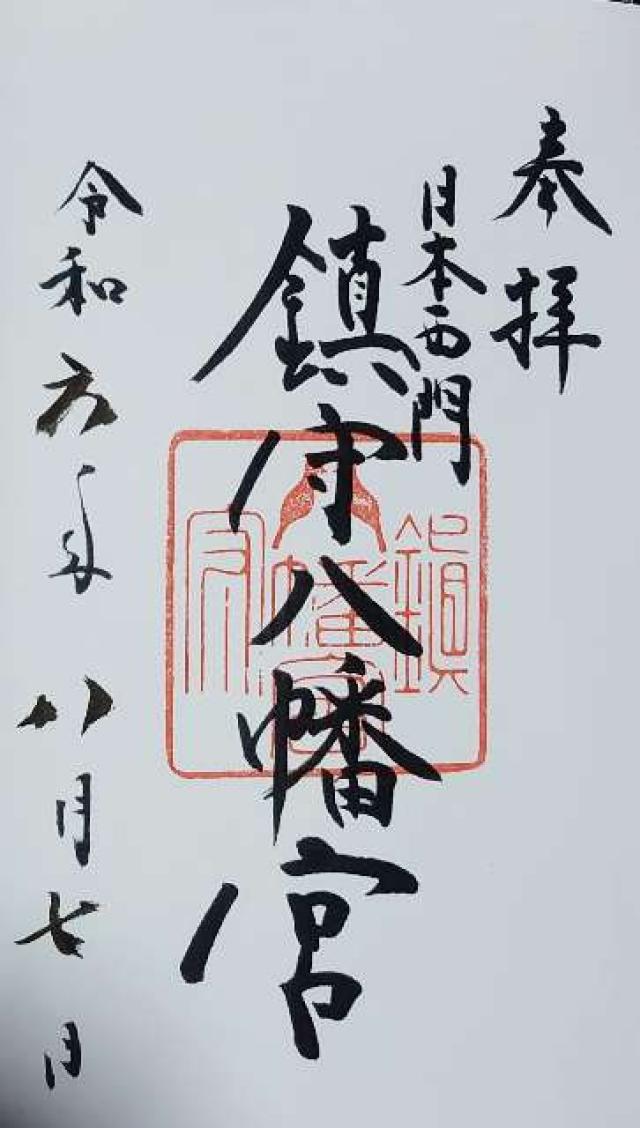 奉拝
日本西門
鎮守八幡宮
令和六年八月七日
鎮守八幡宮